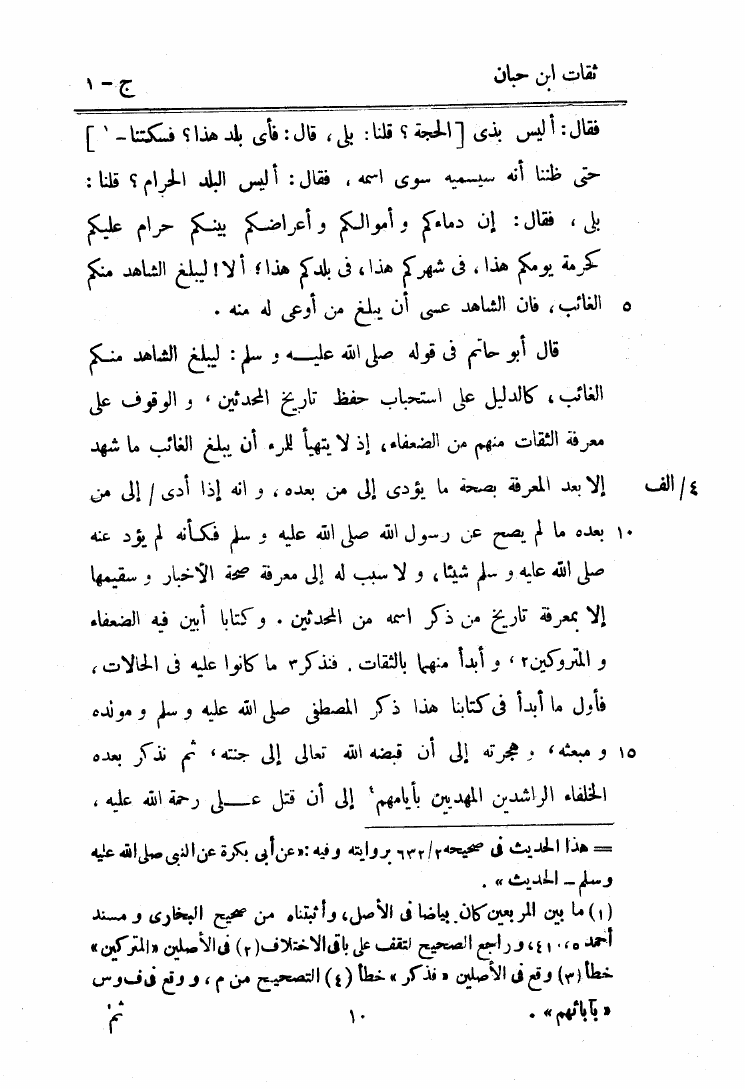 ثقات ابن حبان ج - ١
فقال: أليس بذى [الحجة ؟ قلنا: بلى، قال: فأى بلد هذا؟ فسكتنا-١]
حتى ظننا أنه سيسميه سوى اسمه، فقال: أليس البلد الحرام؟ قلنا:
بلى، فقال: إن دماءكم و أموالكم و أعراضكم بينكم حرام عليكم
كحرمة يومكم هذا، فى شهركم هذا، فى بلدكم هذا؛ ألا! ليبلغ الشاهد منكم
الغائب، فان الشاهد عسى أن يبلغ من أوعى له منه. ٥
قال أبو حاتم فى قوله صلى الله عليه و سلم: ليبلغ الشاهد منكم
الغائب، كالدليل على استحباب حفظ تاريخ المحدثين، و الوقوف على
معرفة الثقات منهم من الضعفاء، إذ لا يتهيأ للمرء أن يبلغ الغائب ما شهد
إلا بعد المعرفة بصحة ما يؤدى إلى من بعده، و انه إذا أدى / إلى من ٤/ الف
بعده ما لم يصح عن رسول الله صلى الله عليه و سلم فكأنه لم يؤد عنه ١٠
صلى الله عليه و سلم شيئا، و لا سبب له إلى معرفة صحة الأخبار و سقيمها
إلا بمعرفة تاريخ من ذكر اسمه من المحدثين. و كتابا أبين فيه الضعفاء
و المتروكين٢، و أبدأ منهما بالثقات. فنذكر٣ ما كانوا عليه فى الحالات،
فأول ما أبدأ فى كتابنا هذا ذكر المصطفى صلى الله عليه و سلم و مولده
و مبعثه، و هجرته إلى أن قبضه الله تعالى إلى جنته، ثم نذكر بعده ١٥
الخلفاء الراشدين المهديين بأيامهم٤ إلى أن قتل على رحمة الله عليه،
= هذا الحديث فى صحيحه ٢/ ٦٣٢ بروايته و فيه: «عن أبى بكرة عن النبى صلى الله عليه
و سلم - الحديث».
(١) ما بين المربعين كان بياضا فى الأصل، و أثبتناه من صحيح البخارى و مسند
أحمد ٥، ٤١٠، و راجع الصحيح لتقف على باقى الاختلاف (٢) فى الأصلين «المتركين»
خطأ (٣) وقع فى الأصلين «فذكر» خطأ (٤) التصحيح من م، و وقع فى ف و س
«بآبائهم».
١٠ ثم